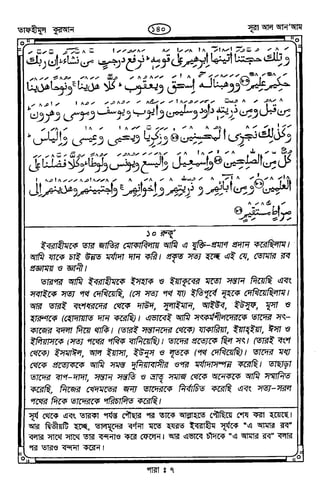 তাফহীমুল কুরআন
১৪০
সূরা আল আন'আম
وَتِلْكَ حُجَّتُنَا آتَيْنَاهَا إِبْرٰهِيْمَ عَلٰى قَوْمِهٖ ۚ نَرْفَعُ دَرَجٰتٍ مَّنْ نَّشَآءُ ۗ إِنَّ رَبَّكَ
حَكِيْمٌ عَلِيْمٌ ۝ وَوَهَبْنَا لَهٗۤ إِسْحٰقَ وَيَعْقُوْبَ ۚ كُلًّا هَدَيْنَا ۚ وَنُوْحًا هَدَيْنَا
مِنْ قَبْلُ وَمِنْ ذُرِّيَّتِهٖ دَاوٗدَ وَسُلَيْمٰنَ وَأَيُّوْبَ وَيُوْسُفَ وَمُوْسٰى وَهٰرُوْنَ ۚ
وَكَذٰلِكَ نَجْزِى الْمُحْسِنِيْنَ ۝ وَزَكَرِيَّا وَيَحْيٰى وَعِيْسٰى وَإِلْيَاسَ ۚ
كُلٌّ مِّنَ الصّٰلِحِيْنَ ۝ وَإِسْمٰعِيْلَ وَالْيَسَعَ وَيُوْنُسَ وَلُوْطًا ۚ وَكُلًّا فَضَّلْنَا عَلَى
الْعٰلَمِيْنَ ۝ وَمِنْ آبَآئِهِمْ وَذُرِّيّٰتِهِمْ وَإِخْوَانِهِمْ ۚ وَاجْتَبَيْنٰهُمْ وَهَدَيْنٰهُمْ إِلٰى
صِرَاطٍ مُّسْتَقِيْمٍ ۝
১০ রুকূ'
ইবরাহীমকে তার জাতির মোকাবিলায় আমি এ যুক্তি-প্রমাণ প্রদান করেছিলাম।
আমি যাকে চাই উন্নত মর্যাদা দান করি। প্রকৃত সত্য হচ্ছে এই যে, তোমার রব
প্রজ্ঞাময় ও জ্ঞানী।
তারপর আমি ইবরাহীমকে ইসহাক ও ইয়াকূবের মতো সন্তান দিয়েছি এবং
সবাইকে সত্য পথ দেখিয়েছি, (সে সত্য পথ যা) ইতিপূর্বে নূহকে দেখিয়েছিলাম।
আর তারই বংশধরদের থেকে দাউদ, সুলাইমান, আইউব, ইউসুফ, মূসা ও
হারুণকে (হেদায়াত দান করেছি)। এভাবেই আমি সৎকর্মশীলদেরকে তাদের সৎ-
কাজের বদলা দিয়ে থাকি। (তারই সন্তানদের থেকে) যাকারিয়া, ইয়াহ্ইয়া, ঈসা ও
ইলিয়াসকে (সত্য পথের পথিক বানিয়েছি)। তাদের প্রত্যেকে ছিল সৎ। (তারই বংশ
থেকে) ইসমাঈল, আল ইয়াসা, ইউনুস ও লূতকে (পথ দেখিয়েছি)। তাদের মধ্য
থেকে প্রত্যেককে আমি সমস্ত দুনিয়াবাসীর ওপর মর্যাদাসম্পন্ন করেছি। তাছাড়া
তাদের বাপ-দাদা, সন্তান সন্ততি ও ভ্রাতৃ সমাজ থেকে অনেককে আমি সম্মানিত
করেছি, নিজের খেদমতের জন্য তাদেরকে নির্বাচিত করেছি এবং সত্য-সরল
পথের দিকে তাদেরকে পরিচালিত করেছি।
সূর্য থেকে এবং তারকা পর্যন্ত পৌছার পর তাকে আল্লাহতে পৌছিয়ে শেষ করা হয়েছে।
আর দ্বিতীয়টি হচ্ছে, তালমূদের বর্ণনা মতে হযরত ইবরাহীম সূর্যকে "এ আমার রব"
বলার সাথে সাথে তার বন্দনাও করে ফেলেন। আর এভাবে চাঁদকে "এ আমার রব" বলার
পর তারও বন্দনা করেন।
পারা ঃ ৭